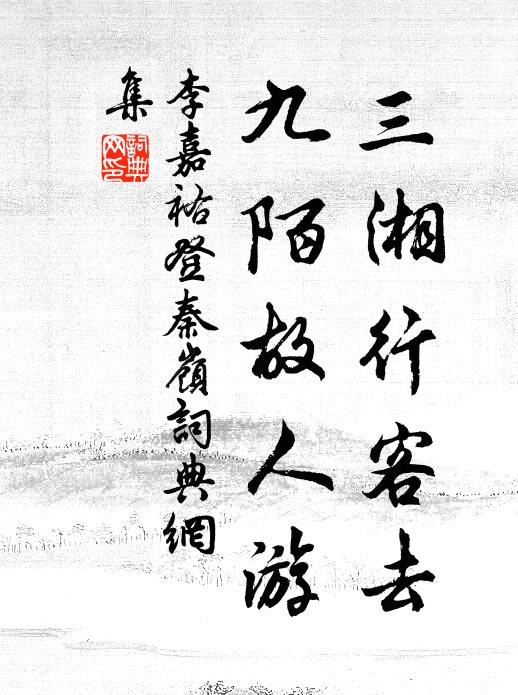 三湘行客去
九陌故人游
李嘉祐登秦嶺詞典網
集
詞典网印